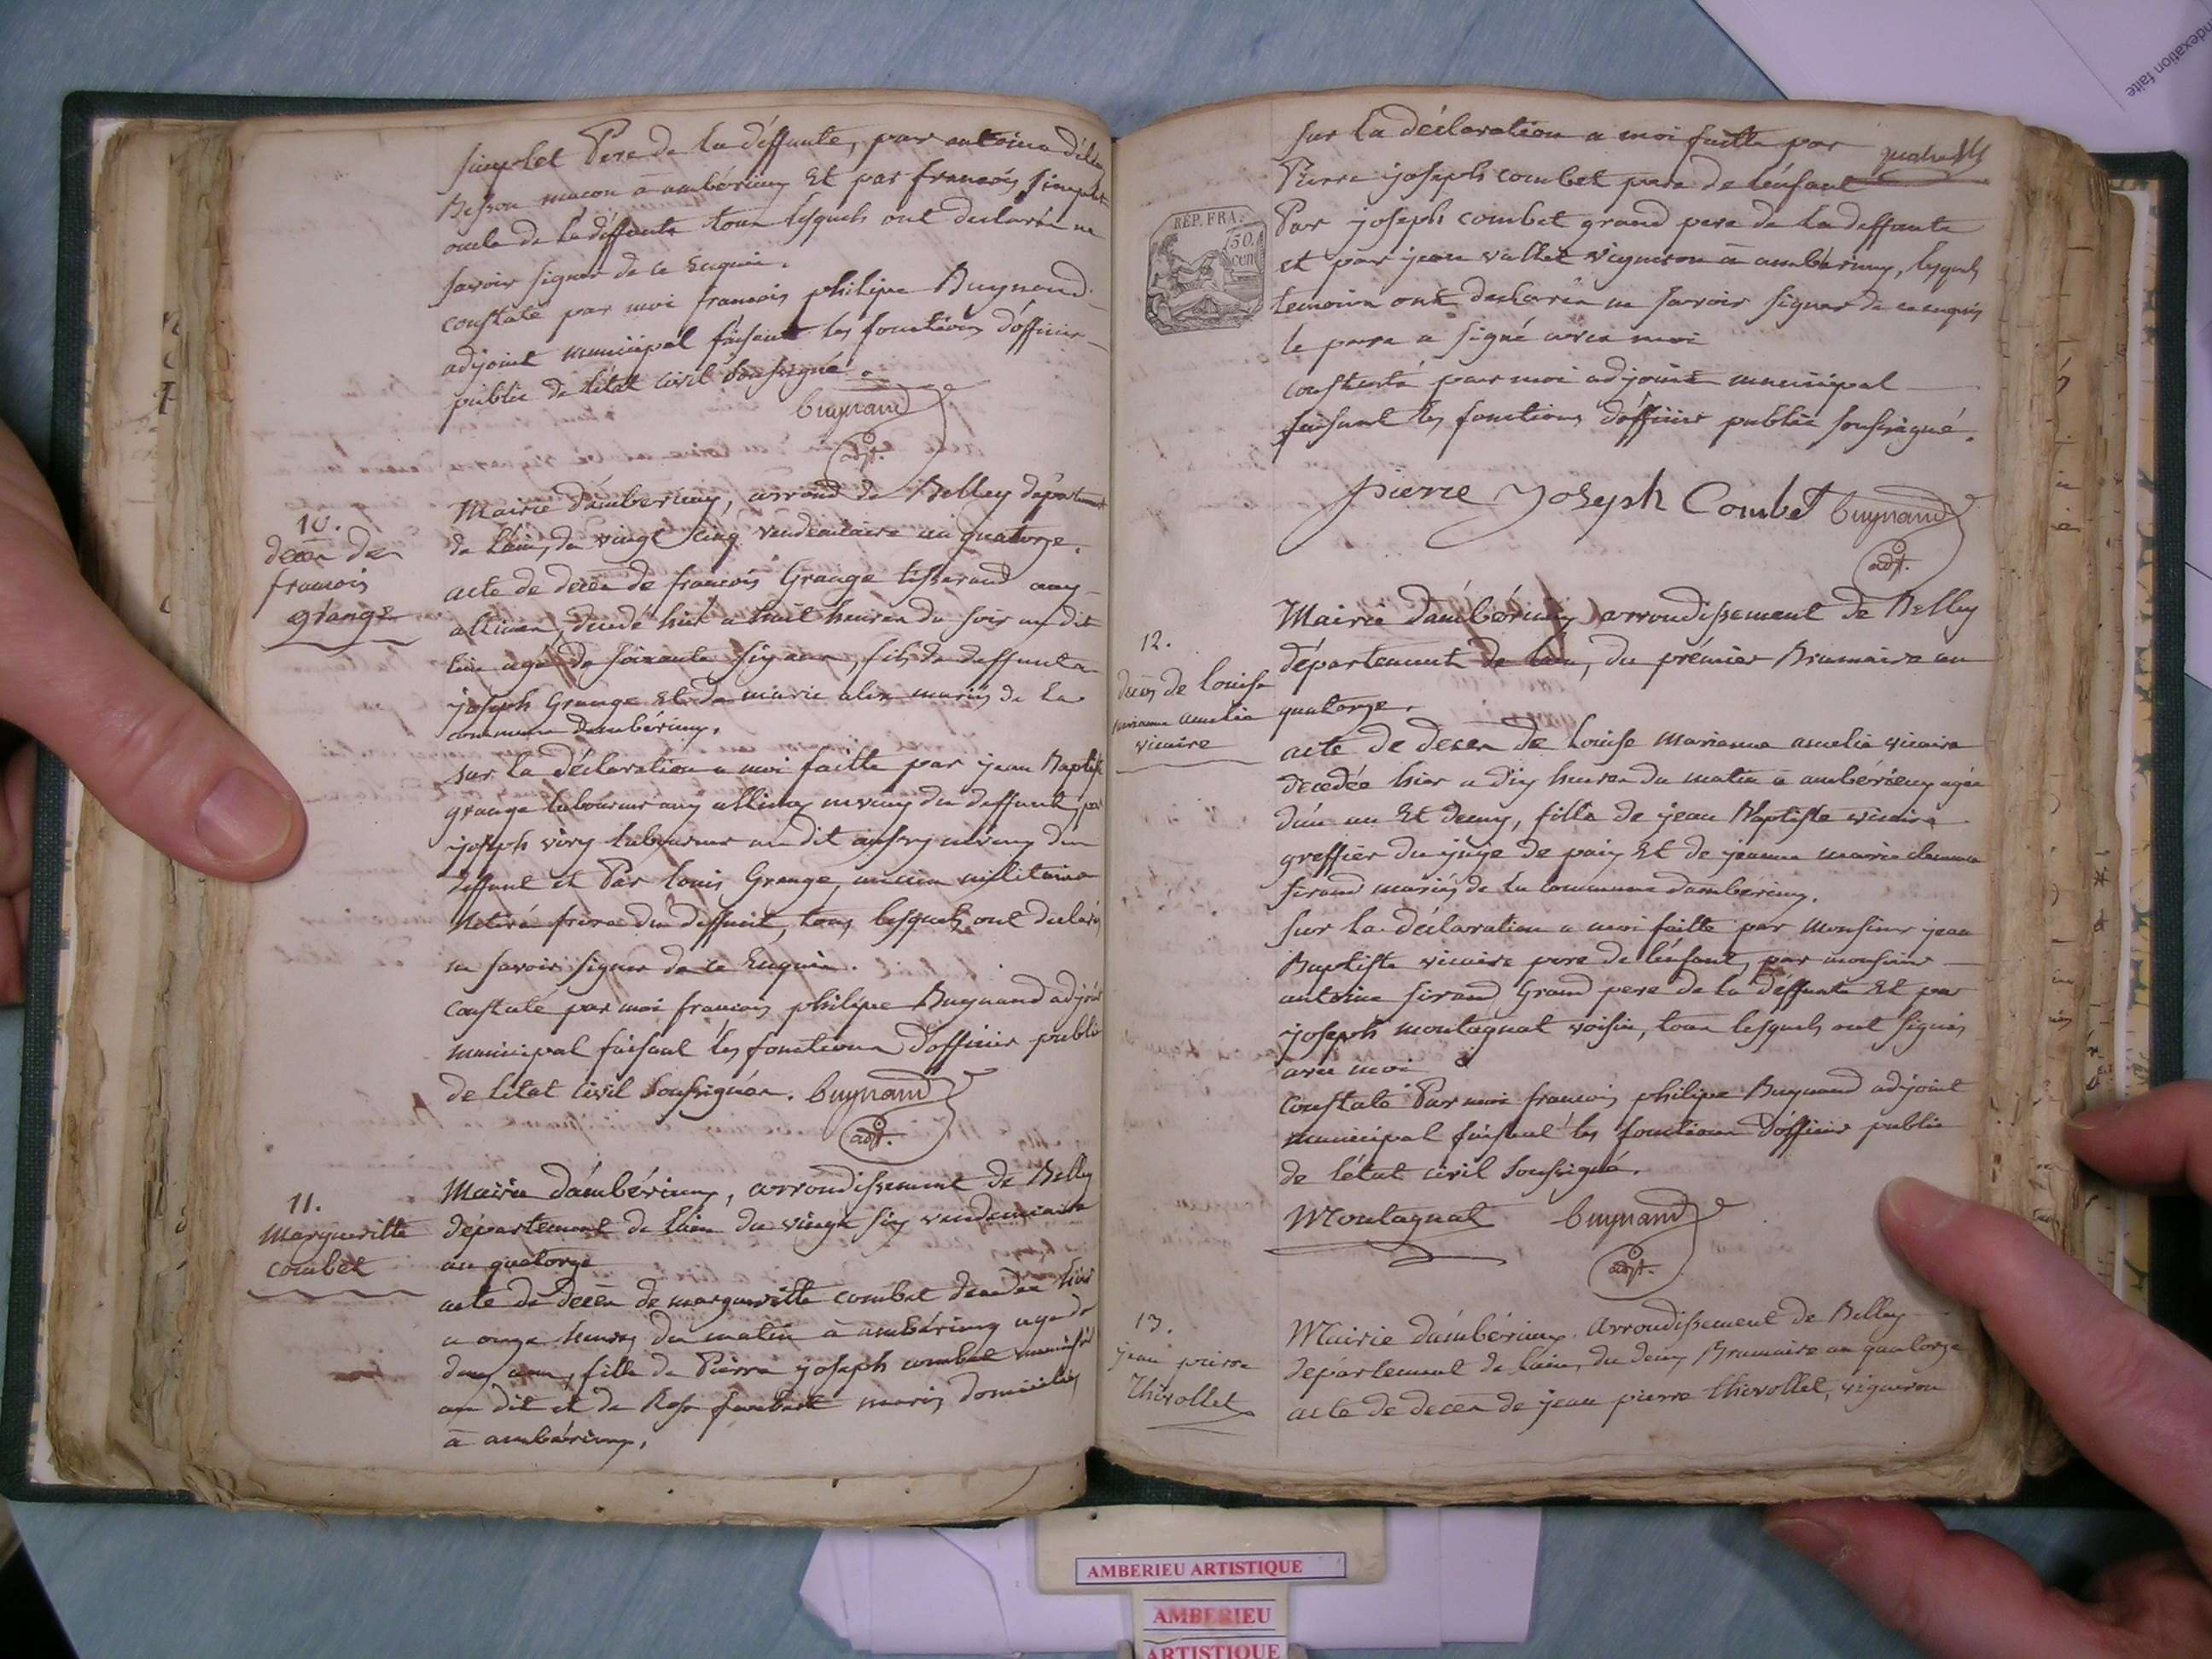 simplet Pere de la déffunte, par antoine
Besson macon à ambérieux Et par francois simplet
oncle de la déffunte tous lesquels ont declarés ne
savoir signer de ce Enquis.
constaté par moi francois philipe Buynand
adjoint municipal faisant les fonctions d'officier
public de l'état civil soussigné.
buynand
adjt.
10.
decés de
francois
grange
Mairie d'amberieux, arrond de Belley département
de l'ain, du vingt cinq vendemiaire an quatorze.
acte de decés de francois Grange tisserand aux
allimes, decedé hier a huit heures du soir au dit
lieu agé de soixante six ans, fils de deffunts
joseph Grange et de marie alex mariés de la
commune d'ambérieux.
sur la déclaration a moi faitte par jean Baptiste
grange laboureur aux allimes neveux du deffunt, par
joseph viry laboureur au dit aussy neveux du
deffunt et Par louis Grange, ancien militaire
Retiré frere du deffunt, tous lesquels ont declarés
ne savoir signer de ce Enquis.
constaté par moi francois philipe Buynand adjoint
municipal faisant les fonctions d'officier public
de l'état civil soussigné. buynand
adjt.
11.
Margueritte
combet
Mairie d'ambérieux, arrondissement de Belley
département de l'ain du vingt six vendemiaire
an quatorze
acte de decés de margueritte combet decedée hier
a onze heures du matin à ambérieux agée de
deux ans, fille de Pierre joseph combet
au dit et de Rose mariés domiciliés
à ambérieux.
sur la déclaration a moi faitte par
Pierre joseph combet pere de l'enfant
Par joseph combet grand pere de la deffunte
et par jean vallet vigneron à ambérieux, lesquels
temoins ont declarés ne savoir signer de ce enquis
le pere a signé avec moi
constaté par moi adjoint municipal
faisant les fonctions d'officier public soussigné.
REP. FRA.
50.
cen
pierre Joseph Combet buynand
adjt.
12.
decés de louise
marianne amelie
vicaire
Mairie d'ambérieux, arrondissement de Belley
département de l'ain, du prémier Brumaire an
quatorze.
acte de deces de louise marianne amelie vicaire
decedée hier a dix heures du matin à ambérieux agée
d'un an Et demy, fille de jean Baptiste vicaire
greffier du juge de paix Et de jeanne marie
sirand mariés de la commune d'ambérieux.
sur la déclaration a moi faitte par Monsieur jean
Baptiste vicaire pere de l'enfant, par monsieur
antoine sirand Grand pere de la déffunte Et par
joseph montagnat voisin, tous lesquels ont signés
avec moi
constaté Par moi francois philipe Buynand adjoint
municipal faisant les fonctions d'officier public
de l'état civil soussigné.
Montagnat buynand
adjt.
13.
jean pierre
Thivollet
Mairie d'ambérieux, arrondissement de Belley
département de l'ain, du deux Brumaire an quatorze
acte de decés de jean pierre thivollet, vigneron
ndexation faite
AMBERIEU ARTISTIQUE
AMBERIEU
ARTISTIQUE